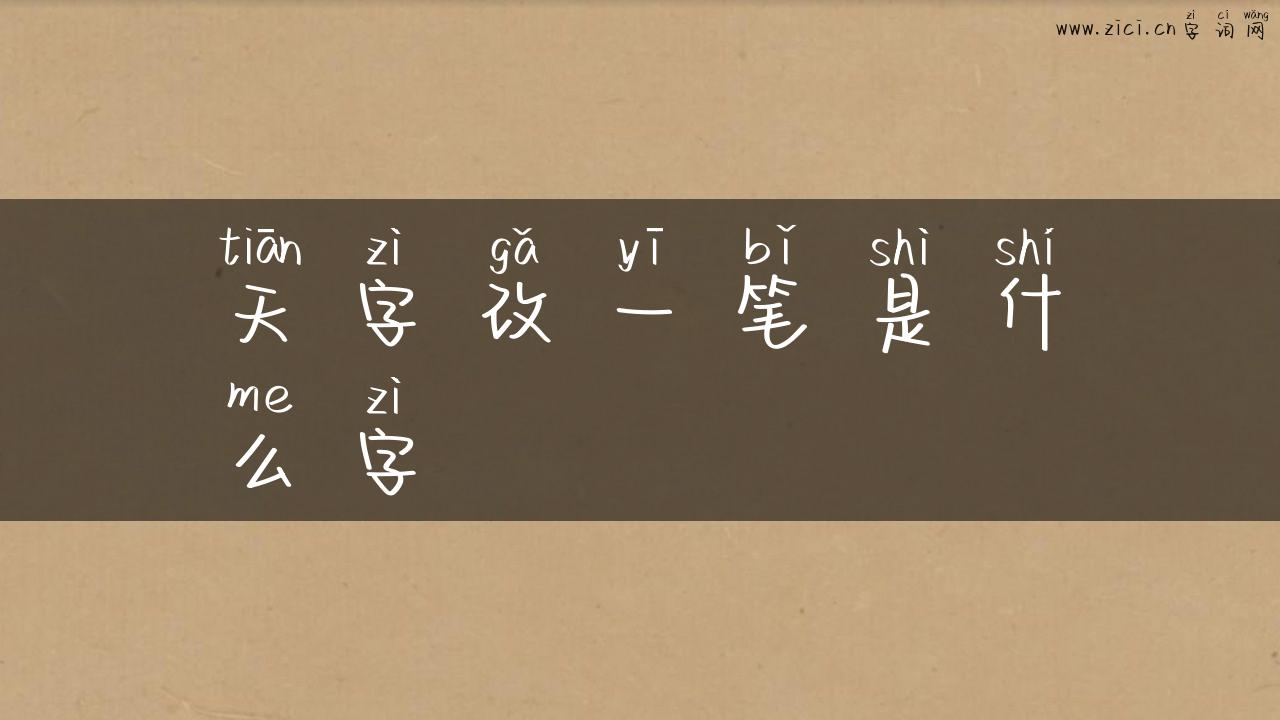 www.zici.cn zì cí wǎng
字词网
tiān zì gǎ yī bǐ shì shí
天字改一笔是什
me zì
么字